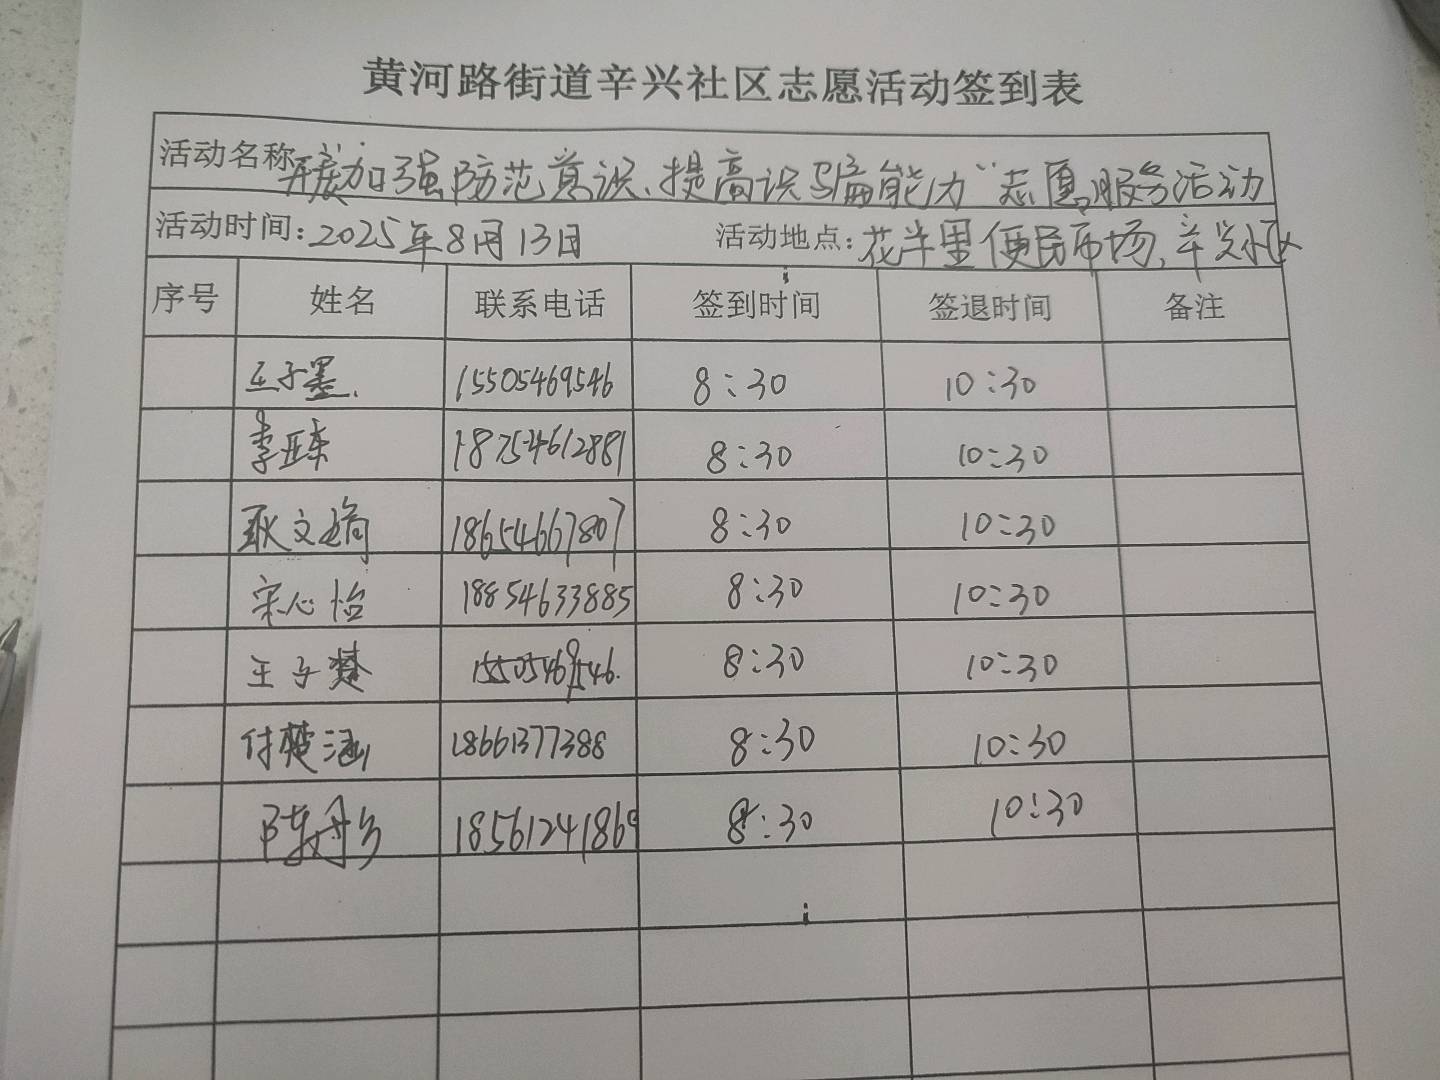 黄河路街道辛兴社区志愿活动签到表
活动名称 开展"加强防范意识、提高识骗能力"志愿服务活动
活动时间：2025年8月13日 活动地点：花半里便民市场、辛兴小区
序号 姓名 联系电话 签到时间 签退时间 备注
王子墨 15505469546 8:30 10:30
李亚东 18754612881 8:30 10:30
耿文 18654667807 8:30 10:30
宋心怡 18854633885 8:30 10:30
王子楚 15505469546 8:30 10:30
付楚涵 18661377388 8:30 10:30
陈丹 18561241869 8:30 10:30